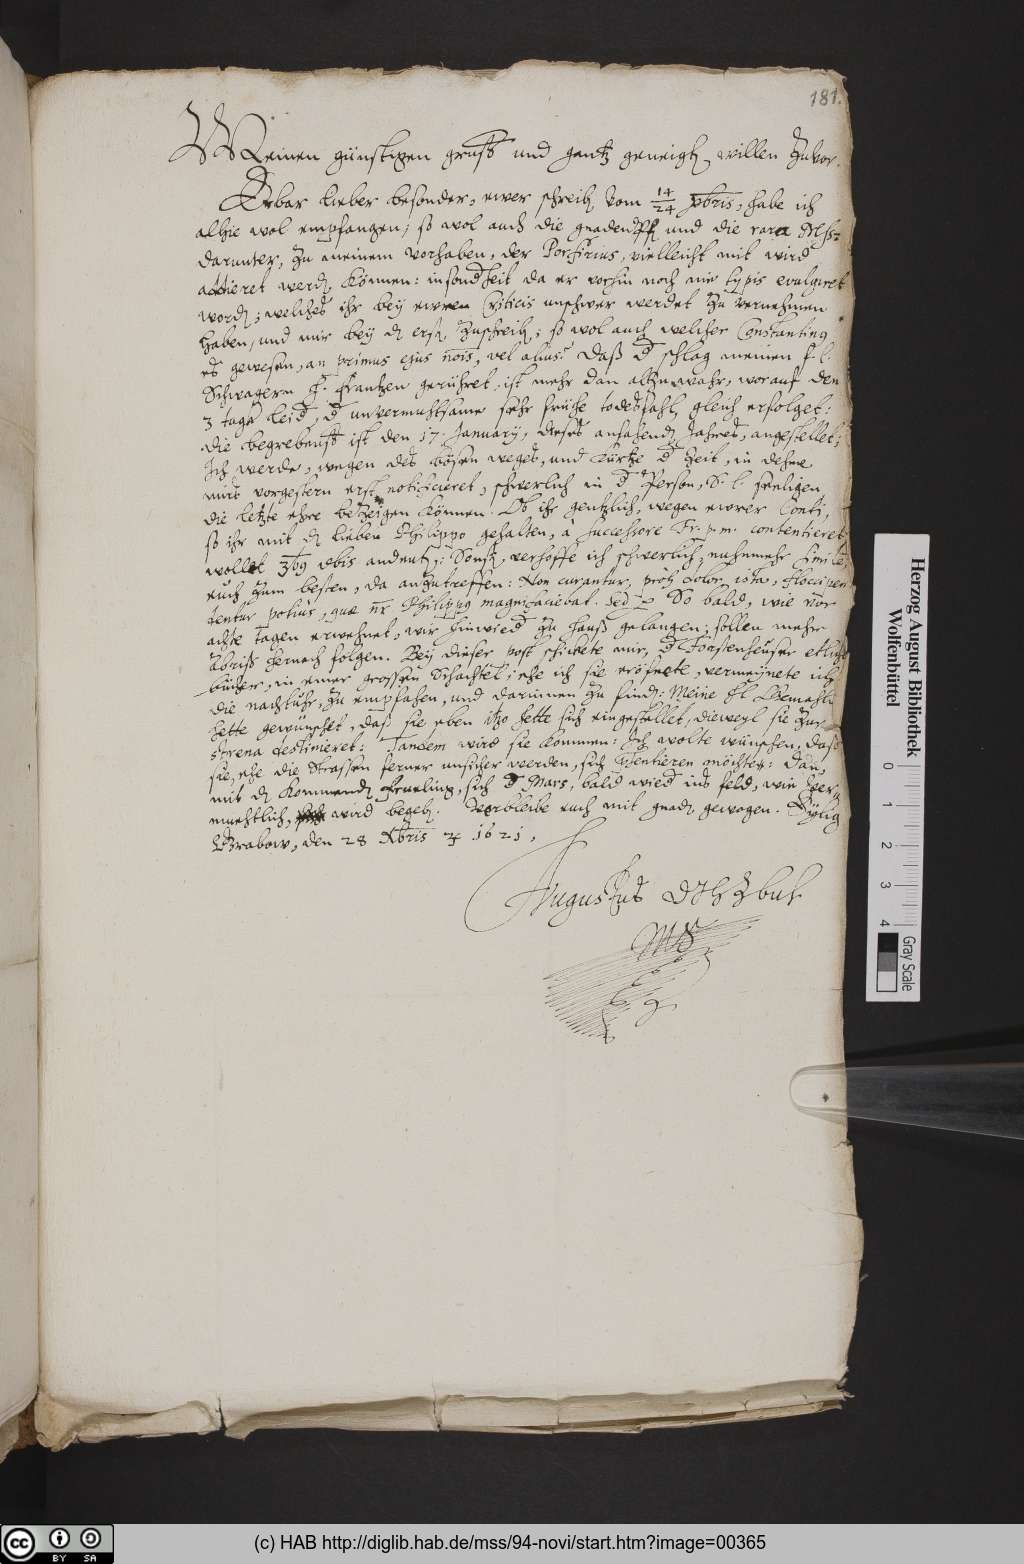 181.
Meinen günstigen gruß und gantz geneigt willen Zuvor.
Erbar lieber besonder, ewer schreib vom 14/24 Xbris, habe ich
alhie wol empfangen; so wol auch die und die rara
darunter, Zu meinem vorhaben, der Porfirius, vielleicht mit wird
werd können: insonderheit da er vorhin noch nie typis evulgiret
word; welches ihr bey ewren Criticis unschwer werdet Zu vernehmen
haben, und mir bey d erst Zuschreib; so wol auch welcher Constantinus
es gewesen, an primus ejus nois, vel alius? Daß d schlag meinen f. l.
Schwagern H. Frantzen gerühret, ist mehr dan alzuwahr, worauf den
3 tags leid, d unvermuhtsame sehr frühe todesfahl gleich erfolget:
die begrebnuß ist den 17. January, dieses anfahend Jahres, angestellet;
Ich werde, wegen des bösen weges, und kürtze d Zeit, in deme
mirs vorgestern erst notificieret, schwerlich in d Person, S. l. seeligen
die letzte ehre beZeigen können. Ob ihr gentzlich, wegen ewrer Conti,
so ihr mit d lieben Philippo gehalten, à successore Fr. p. m. contentieret,
wollet andeut; Sonst verhoffe ich schwerlich, nuhnmehr
euch Zum besten, da anZutreffen: Non curantur, proh dolor, ista,
potius, quæ nr Philippus magnifaciebat. Sed So bald, wie vor
achte tagen erwehnet, wir hinwied Zu hauß gelangen; sollen mehr
Abriß hernach folgen. Bey dieser post schickete mir, d Forstenheuser etliche
bücher, in einer grossen Schachtel; ehe ich sie eröfnete, vermeynete ich
die nachtuhr, Zu empfahen, und darinnen Zu find: Meine Hl Gemahl
hette gewünschet, daß sie eben itzo hette sich eingestellet, dieweyl sie Zur
strena destinieret: Tandem wird sie kommen: Ich wolte wünschen, daß
sie, ehe die Strassen ferner unsicher werden, sich möchte: dan,
mit d kommend Frueling, sich d Mars, bald wied ins feld, wie ver-
muhtlich, wird begeb. Verbleibe euch mit gnad gewogen. Eylig
Grabow, den 28 Xbris 1621.
Augustus DJh Zbul
Mp
Herzog August Bibliothek
Wolfenbüttel
0 1 2 3 4
Gray Scale
cc BY SA
(c) HAB http://diglib.hab.de/mss/94-novi/start.htm?image=00365